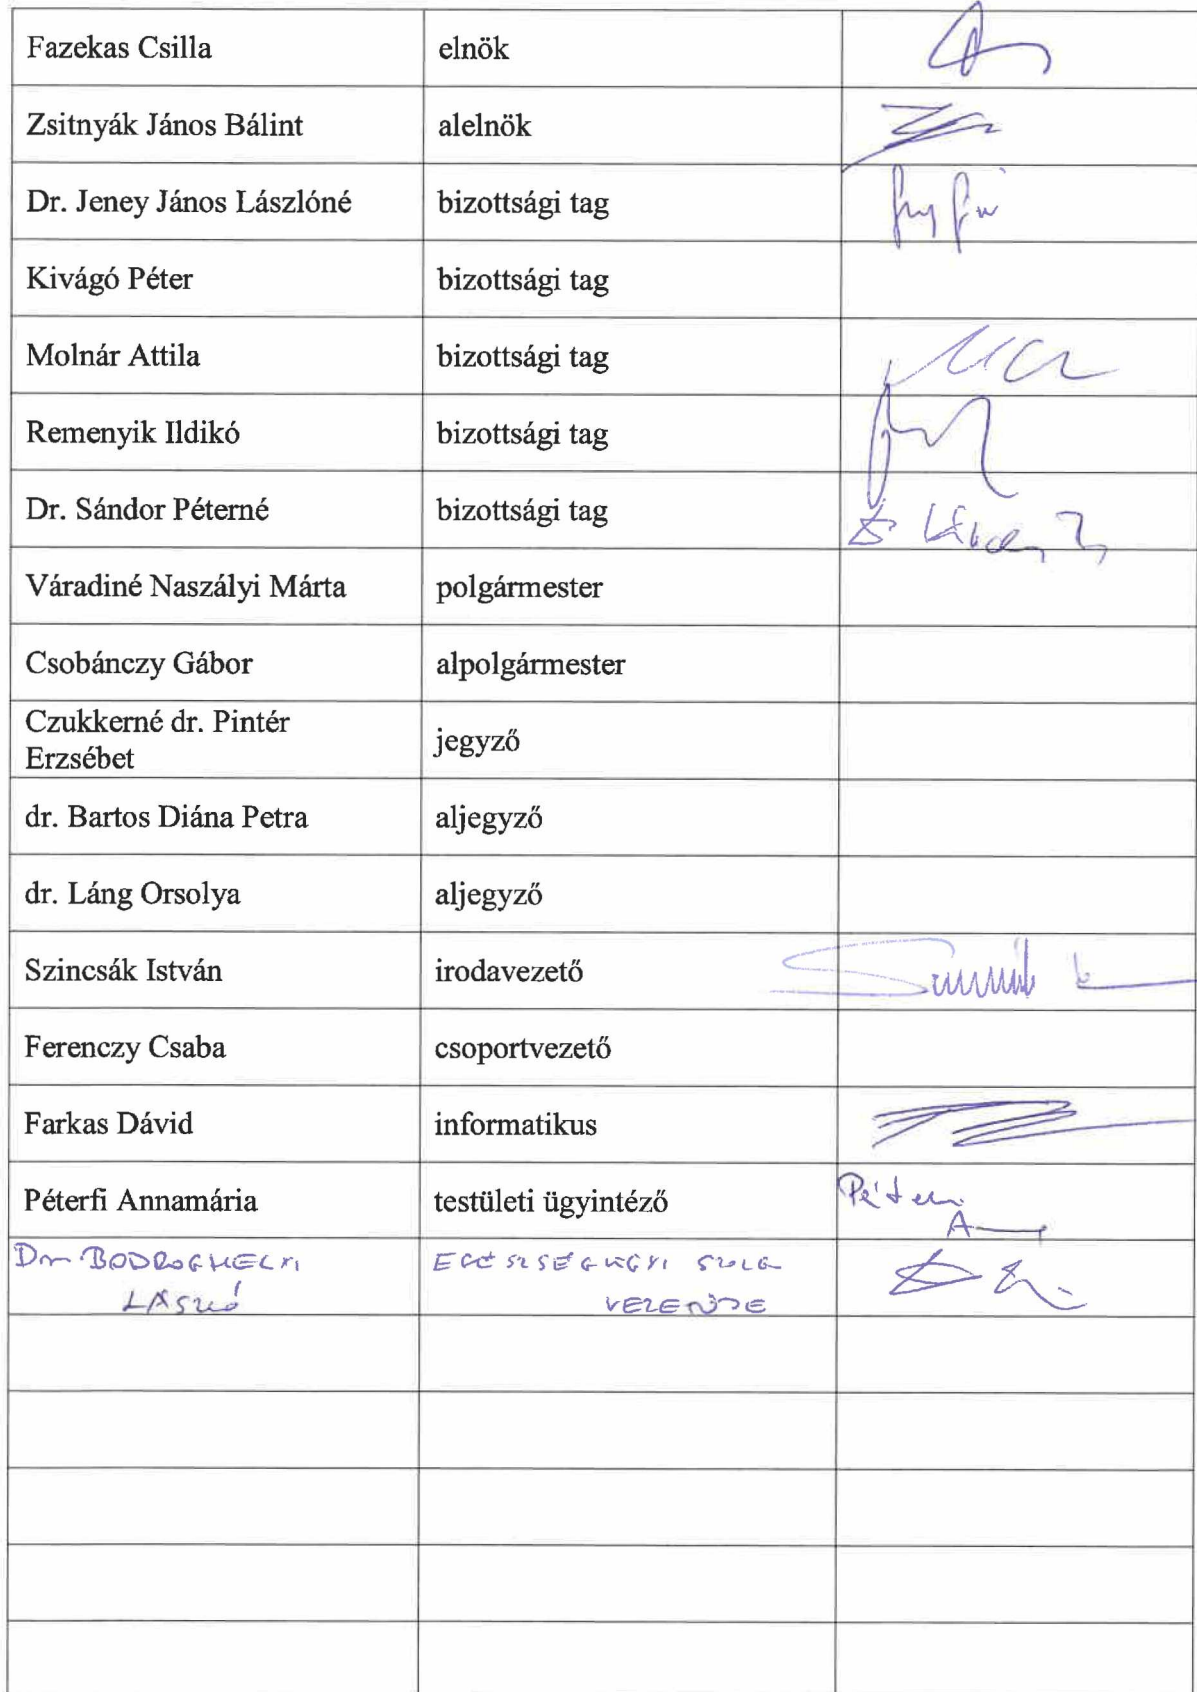 Fazekas Csilla elnök
Zsitnyák János Bálint alelnök
Dr. Jeney János Lászlóné bizottsági tag
Kivágó Péter bizottsági tag
Molnár Attila bizottsági tag
Remenyik Ildikó bizottsági tag
Dr. Sándor Péterné bizottsági tag
Váradiné Naszályi Márta polgármester
Csobánczy Gábor alpolgármester
Czukkerné dr. Pintér
Erzsébet jegyző
dr. Bartos Diána Petra aljegyző
dr. Láng Orsolya aljegyző
Szincsák István irodavezető
Ferenczy Csaba csoportvezető
Farkas Dávid informatikus
Péterfi Annamária testületi ügyintéző
Dr BODROGHELYI EGÉSZSÉGÜGYI SZOLG
LÁSZLÓ